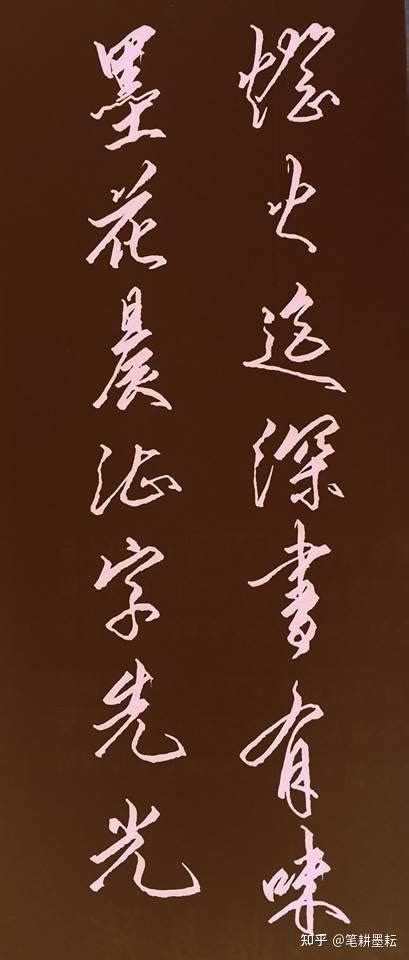 燈火深書有味
墨花晨字先光
知乎 @笔耕墨耘